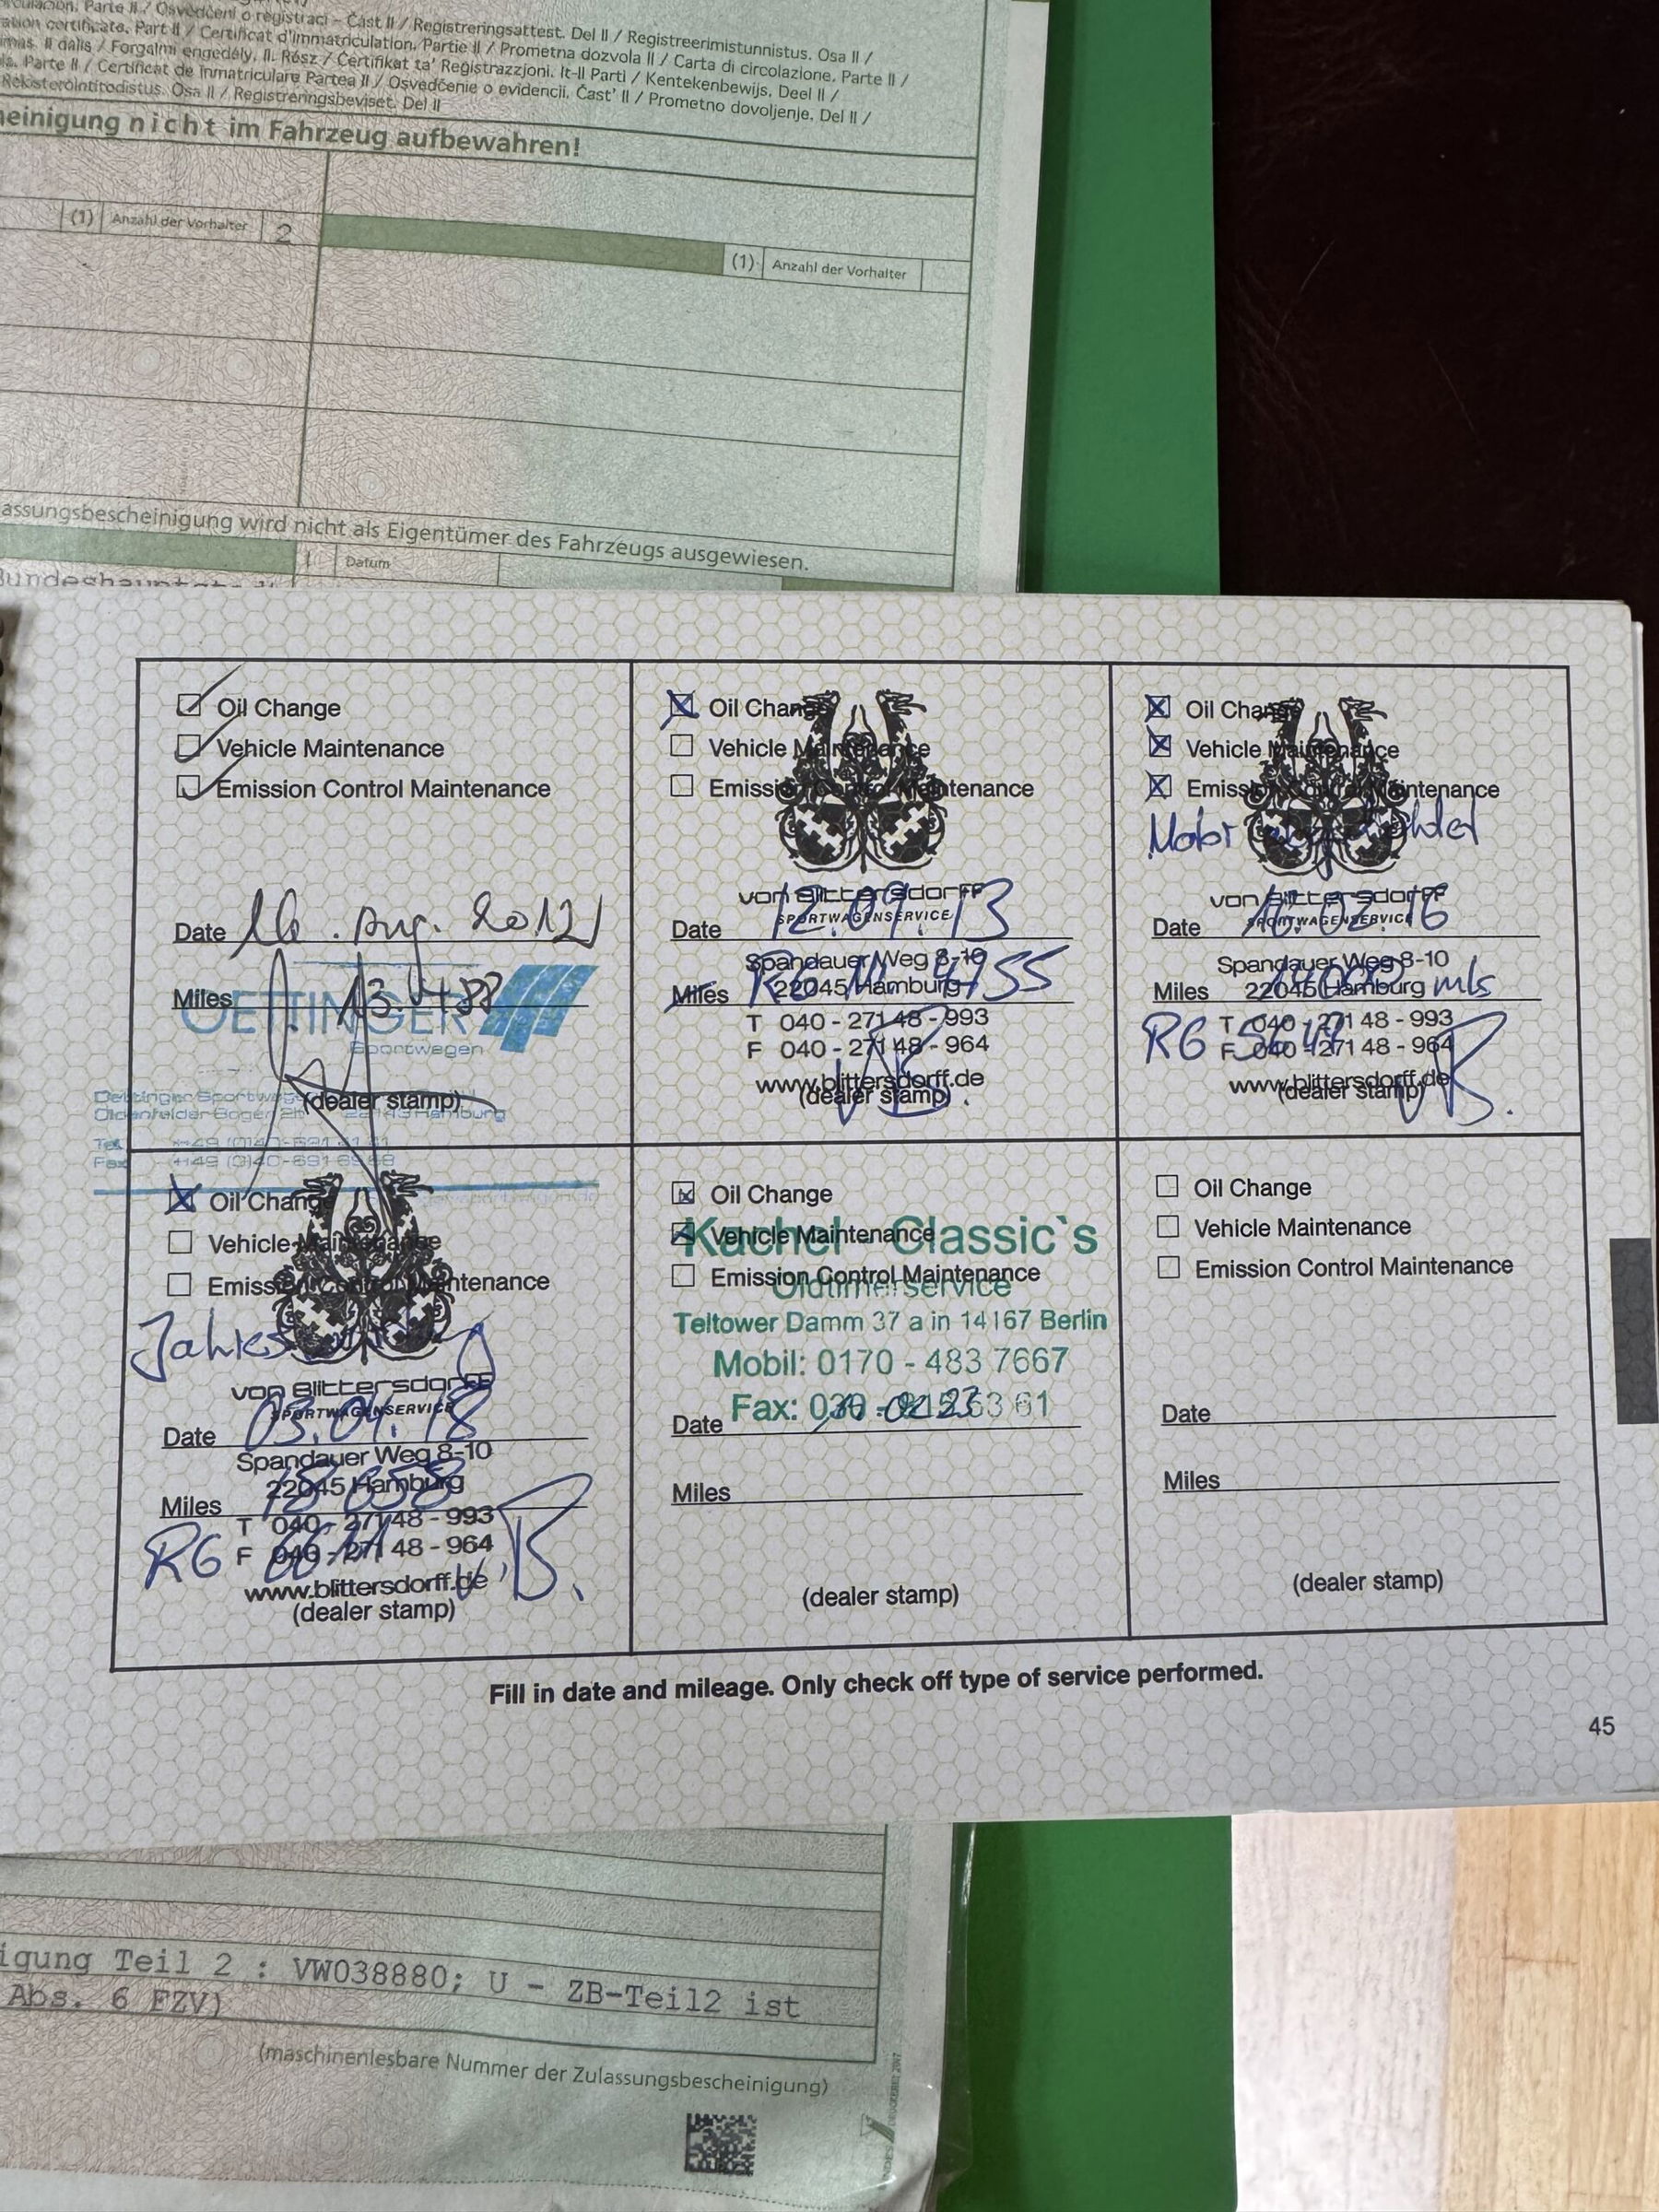 Parte II / Osvědčení o registraci – Část II / Registreringsattest. Del II / Registreerimistunnistus. Osa II /
certificate. Part II / Certificat d'immatriculation. Partie II / Prometna dozvola II / Carta di circolazione. Parte II /
II dalis / Forgalmi engedély. II. Rész / Ċertifikat ta' Reġistrazzjoni. It-II Parti / Kentekenbewijs. Deel II /
Parte II / Certificat de înmatriculare Partea II / Osvedčenie o evidencii. Časť II / Prometno dovoljenje. Del II /
Rekisteröintitodistus. Osa II / Registreringsbeviset. Del II
einigung nicht im Fahrzeug aufbewahren!
(1) Anzahl der Vorhalter 2
(1) Anzahl der Vorhalter
assungsbescheinigung wird nicht als Eigentümer des Fahrzeugs ausgewiesen.
Datum
Oil Change
Vehicle Maintenance
Emission Control Maintenance
Date 16. Aug. 2012
Miles 13 488
OETTINGER
Sportwagen
(dealer stamp)
Oettinger Sportwagen
Oldenfelder Bogen 2h 22143 Hamburg
Tel.
Fax
Oil Change
Vehicle Maintenance
Emission Control Maintenance
von Blittersdorff
SPORTWAGENSERVICE
Date 12.09.13
Spandauer Weg 8-10
Miles 22045 Hamburg
RG 4955
T 040 - 27148 - 993
F 040 - 27148 - 964
www.blittersdorff.de
(dealer stamp)
Oil Change
Vehicle Maintenance
Emission Control Maintenance
von Blittersdorff
SPORTWAGENSERVICE
Date
Spandauer Weg 8-10
Miles 22045 Hamburg mls
T 040 - 27148 - 993
RG F 040 - 27148 - 964
www.blittersdorff.de
(dealer stamp)
Oil Change
Vehicle Maintenance
Emission Control Maintenance
von Blittersdorff
SPORTWAGENSERVICE
Date 03.04.18
Spandauer Weg 8-10
22045 Hamburg
Miles
T 040 - 27148 - 993
RG F 040 - 27148 - 964
www.blittersdorff.de
(dealer stamp)
Oil Change
Kachel Classic`s
Vehicle Maintenance
Emission Control Maintenance
Oldtimerservice
Teltower Damm 37 a in 14167 Berlin
Mobil: 0170 - 483 7667
Fax: 030 - 815 63 61
Date
Miles
(dealer stamp)
Oil Change
Vehicle Maintenance
Emission Control Maintenance
Date
Miles
(dealer stamp)
Fill in date and mileage. Only check off type of service performed.
45
igung Teil 2 : VW038880; U - ZB-Teil2 ist
Abs. 6 FZV)
(maschinenlesbare Nummer der Zulassungsbescheinigung)